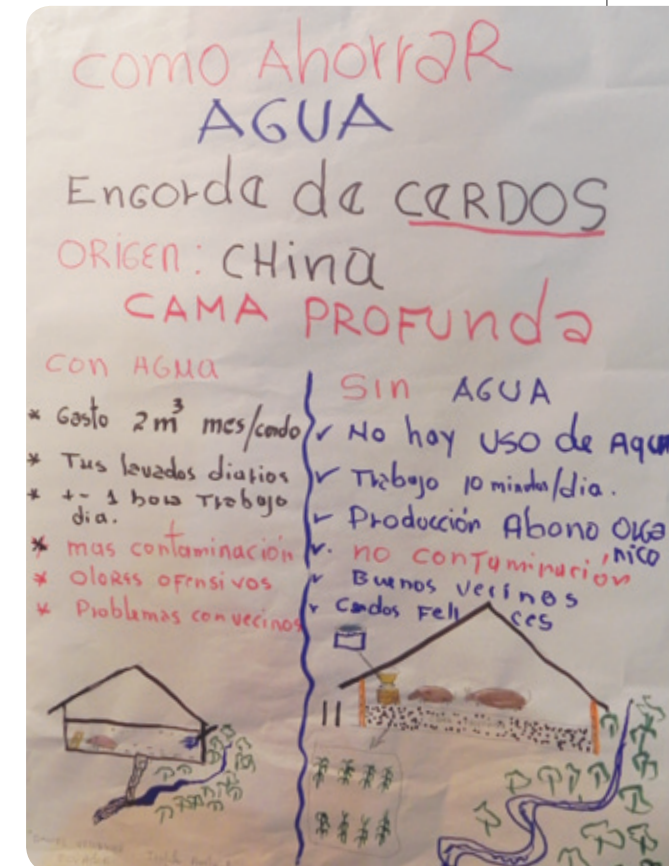 Como AhorraR
AGUA
Engorda de CERDOS
ORIGEN: CHina
CAMA PROFUnda
Con AGUA
* Gasto 2m³ mes/cerdo
* Tus lavados diarios
* +- 1 hora Trabajo
dia.
* mas contaminación
* Olores ofensivos
* Problemas con vecinos
Sin AGUA
✓ No hay uso de Agua
✓ Trabajo 10 minutos/dia.
✓ Producción Abono Orga
nico
✓. no contaminación
✓ Buenos vecinos
✓ Cerdos Feli ces